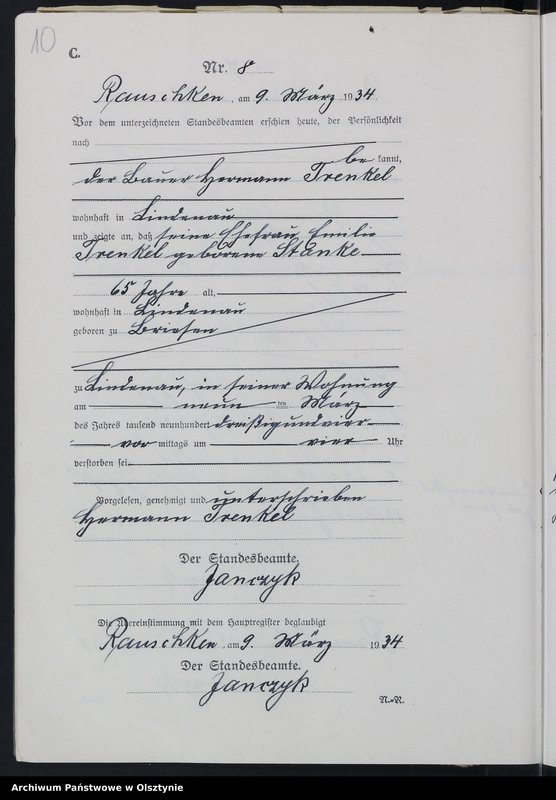 10
C.
Nr. 8
Rauschken, am 9. März 1934.
Vor dem unterzeichneten Standesbeamten erschien heute, der Persönlichkeit
nach
be kannt,
der Bauer Hermann Trenkel
wohnhaft in Lindenau
und zeigte an, daß seine Ehefrau Emilie
Trenkel geborene Stanke
65 Jahre alt,
wohnhaft in Lindenau
geboren zu Briesen
zu Lindenau, in seiner Wohnung
am neun ten März
des Jahres tausend neunhundert dreißigundvier
vor mittags um vier Uhr
verstorben sei.
Vorgelesen, genehmigt und unterschrieben
Hermann Trenkel
Der Standesbeamte.
Janczyk
Die Übereinstimmung mit dem Hauptregister beglaubigt
Rauschken, am 9. März 1934
Der Standesbeamte.
Janczyk
N.-R.
Archiwum Państwowe w Olsztynie